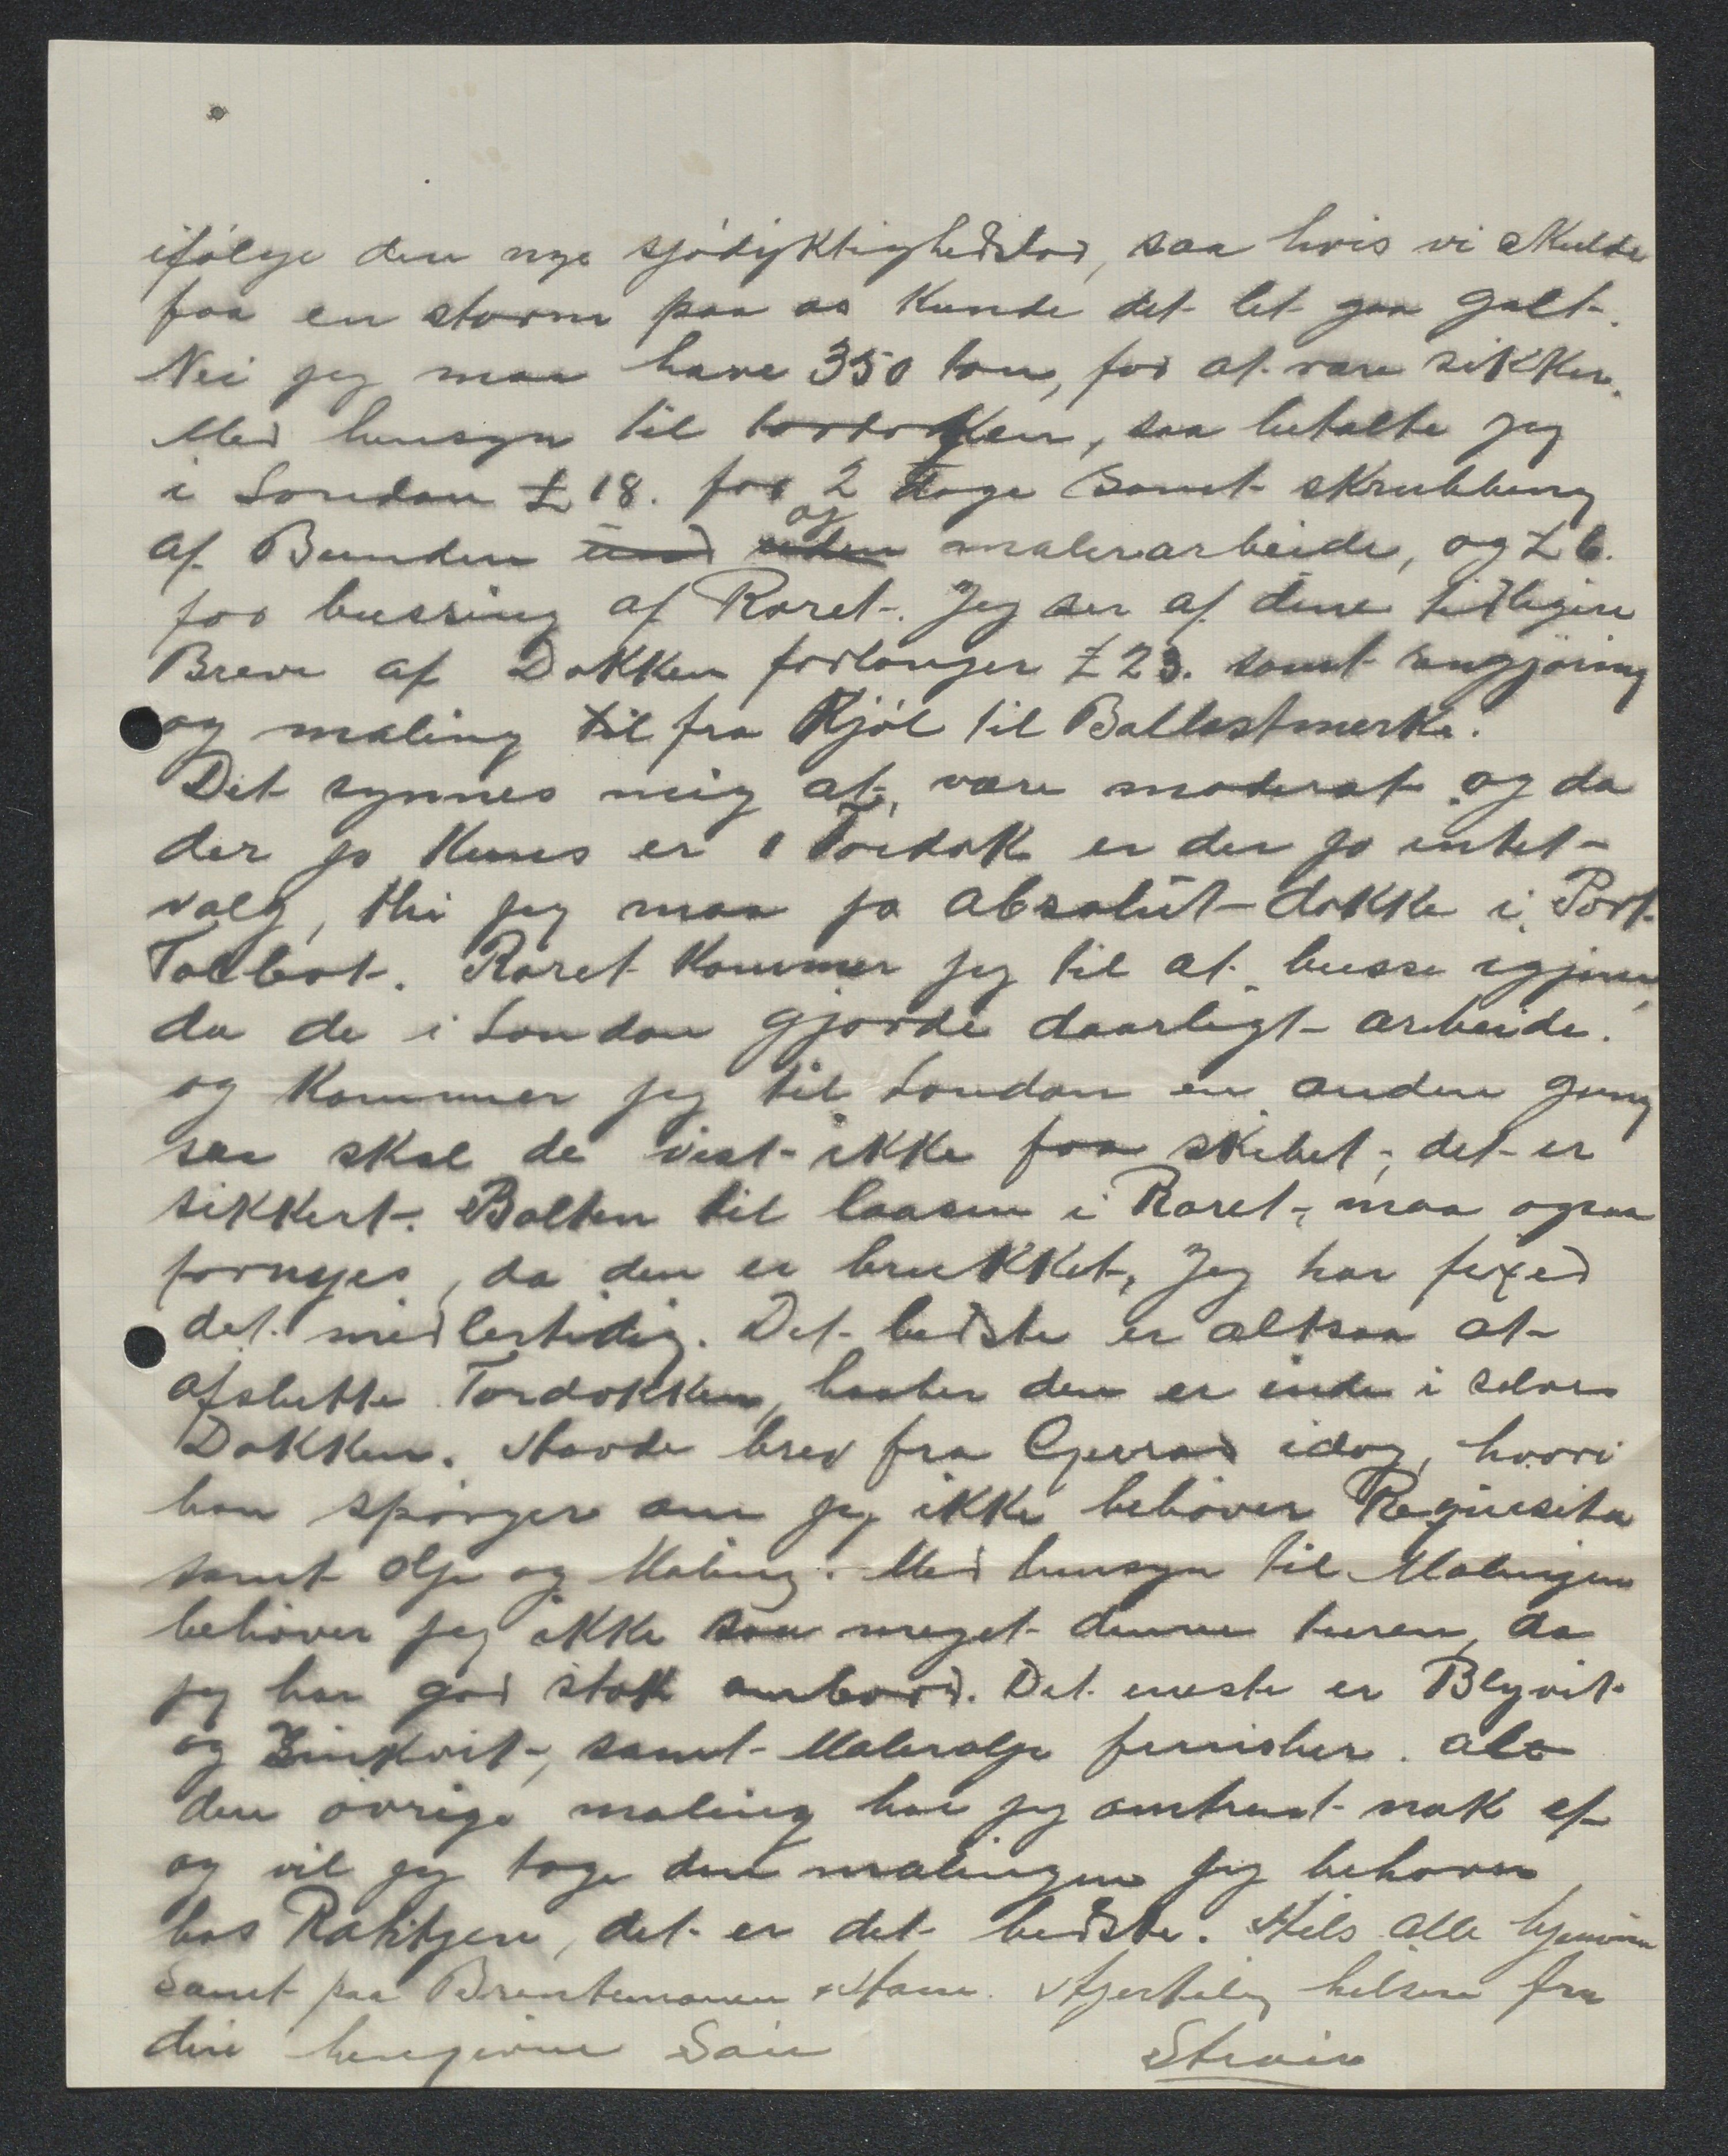 ifölge den nye sjödyktighedslov, saa hvis vi skulde
faa en storm paa os kunde det let gaa galt.
Nei jeg maa have 350 ton, for at være sikker.
Med hensyn til tordokken, saa betalte jeg
i London £18. for 2 dage samt skrubbing
af Bunden og malerarbeide, og £6.
for bussing af Roret. Jeg ser af dine tidligere
Breve at Dokken forlanger £23. samt rengjöring
og maling til fra Kjöl til Ballastmerke.
Det synnes mig at være moderat og da
der jo kuns er 1 Tordok er der jo intet
valg, thi jeg maa jo absolut dokke i Port
Talbot. Roret kommer jeg til at busse igjen,
da de i London gjorde daarligt arbeide.
og kommer jeg til London en anden gang
saa skal de vist ikke faa skibet, det er
sikkert. Bolten til laasen i Roret, maa ogsaa
fornyes, da den er brukket, Jeg har fixed
det midlertidig. Det bedste er altsaa at
afslutte Tordokken, den er inde i selve
Dokken. Havde brev fra idag, hvori
han spörger om jeg ikke behöver Requisita
samt olje og Maling. Med hensyn til Malingen
behöver jeg ikke saa meget denne turen, da
jeg har god stok ombord. Det eneste er Blyvit
og Zinkvit, samt Malerolje fernister. alt
den övrige maling har jeg omtrent nok af
og vil jeg tage den malingen jeg behöver
hos Rahtjen, det er det bedste. Hils alle hjemme
samt paa Hjertelig hilsen fra
din hengivne Sön